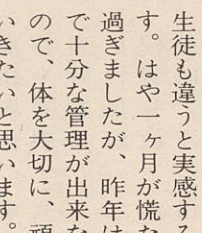 生徒も違うと実感する
す。はや一ヶ月が慌た
過ぎましたが、昨年は
で十分な管理が出来な
ので、体を大切に、頑
いきたいと思います。